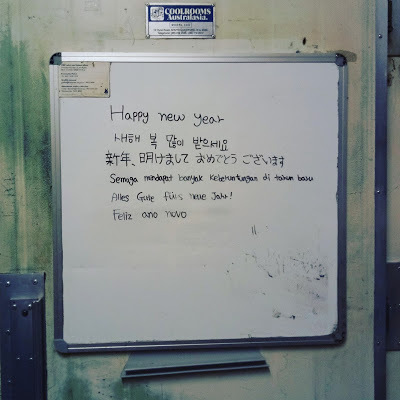 COOLROOMS
Australasia.
Happy new year
새해 복 많이 받으세요
新年、明けまして おめでとう ございます
Semoga mindapat banyak keberuntungan di tahun baru
Alles Gute für's neue Jahr!
Feliz ano novo